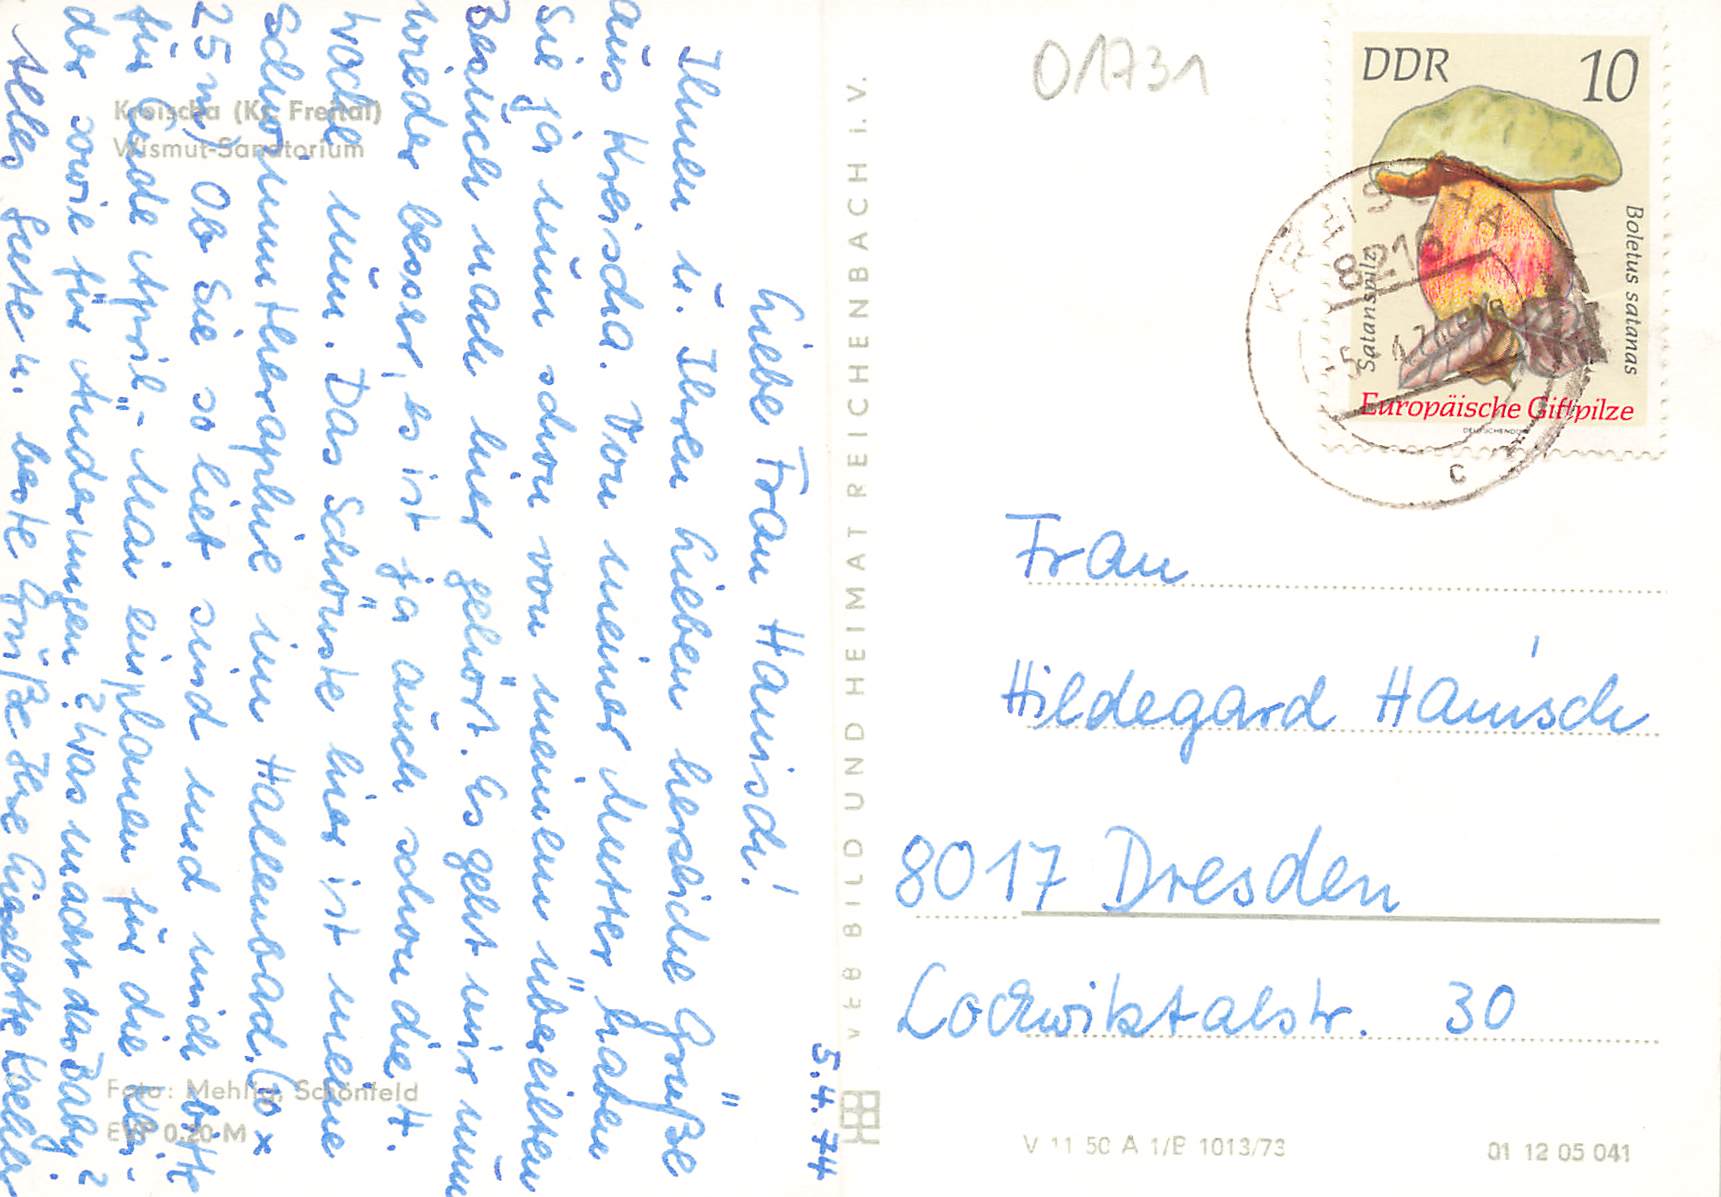 5.4.74
Liebe Frau Hanisch!
Ihnen u. Ihren Lieben herzliche Grüße
aus Kreischa. Von meiner Mutter haben
Sie ja nun schon von meinem übereilten
Besuch nach hier gehört. Es geht mir nun
wieder besser, es ist ja auch schon die 4.
Woche nun. Das Schönste hier ist meine
Schwimmtheraphie im Hallenbad. (10 x
25 m) Ob Sie so lieb sind und mich bitte
für Ende April - Mai einplanen für die
der sowie für Änderungen? Was macht das Baby?
Alles Gute u. beste Grüße Ihre Liselotte
Kreischa (Kr. Freital)
Wismut-Sanatorium
Foto: Mehlig, Schönfeld
EVP 0.20 M
VEB BILD UND HEIMAT REICHENBACH I. V.
01731
DDR 10
Boletus satanas
Satanspilz
Europäische Giftpilze
KREISCHA
8216
C
Frau
Hildegard Hanisch
8017 Dresden
Lockwitztalstr. 30
V 11 50 A 1/B 1013/73
01 12 05 041